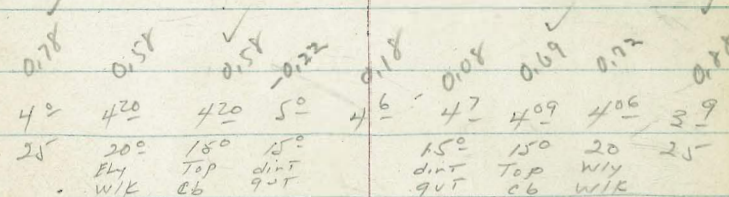 0.78 0.58 0.58 -0.22 0.18 0.08 0.69 0.72 0.88
4 0 4 20 4 20 5 0 4 6 4 7 4 09 4 06 3 9
25 20 0 15 0 15 0 15 0 15 0 20 25
Ely Top dirt dirt Top Wly
W/K Cb gut gut cb W/K